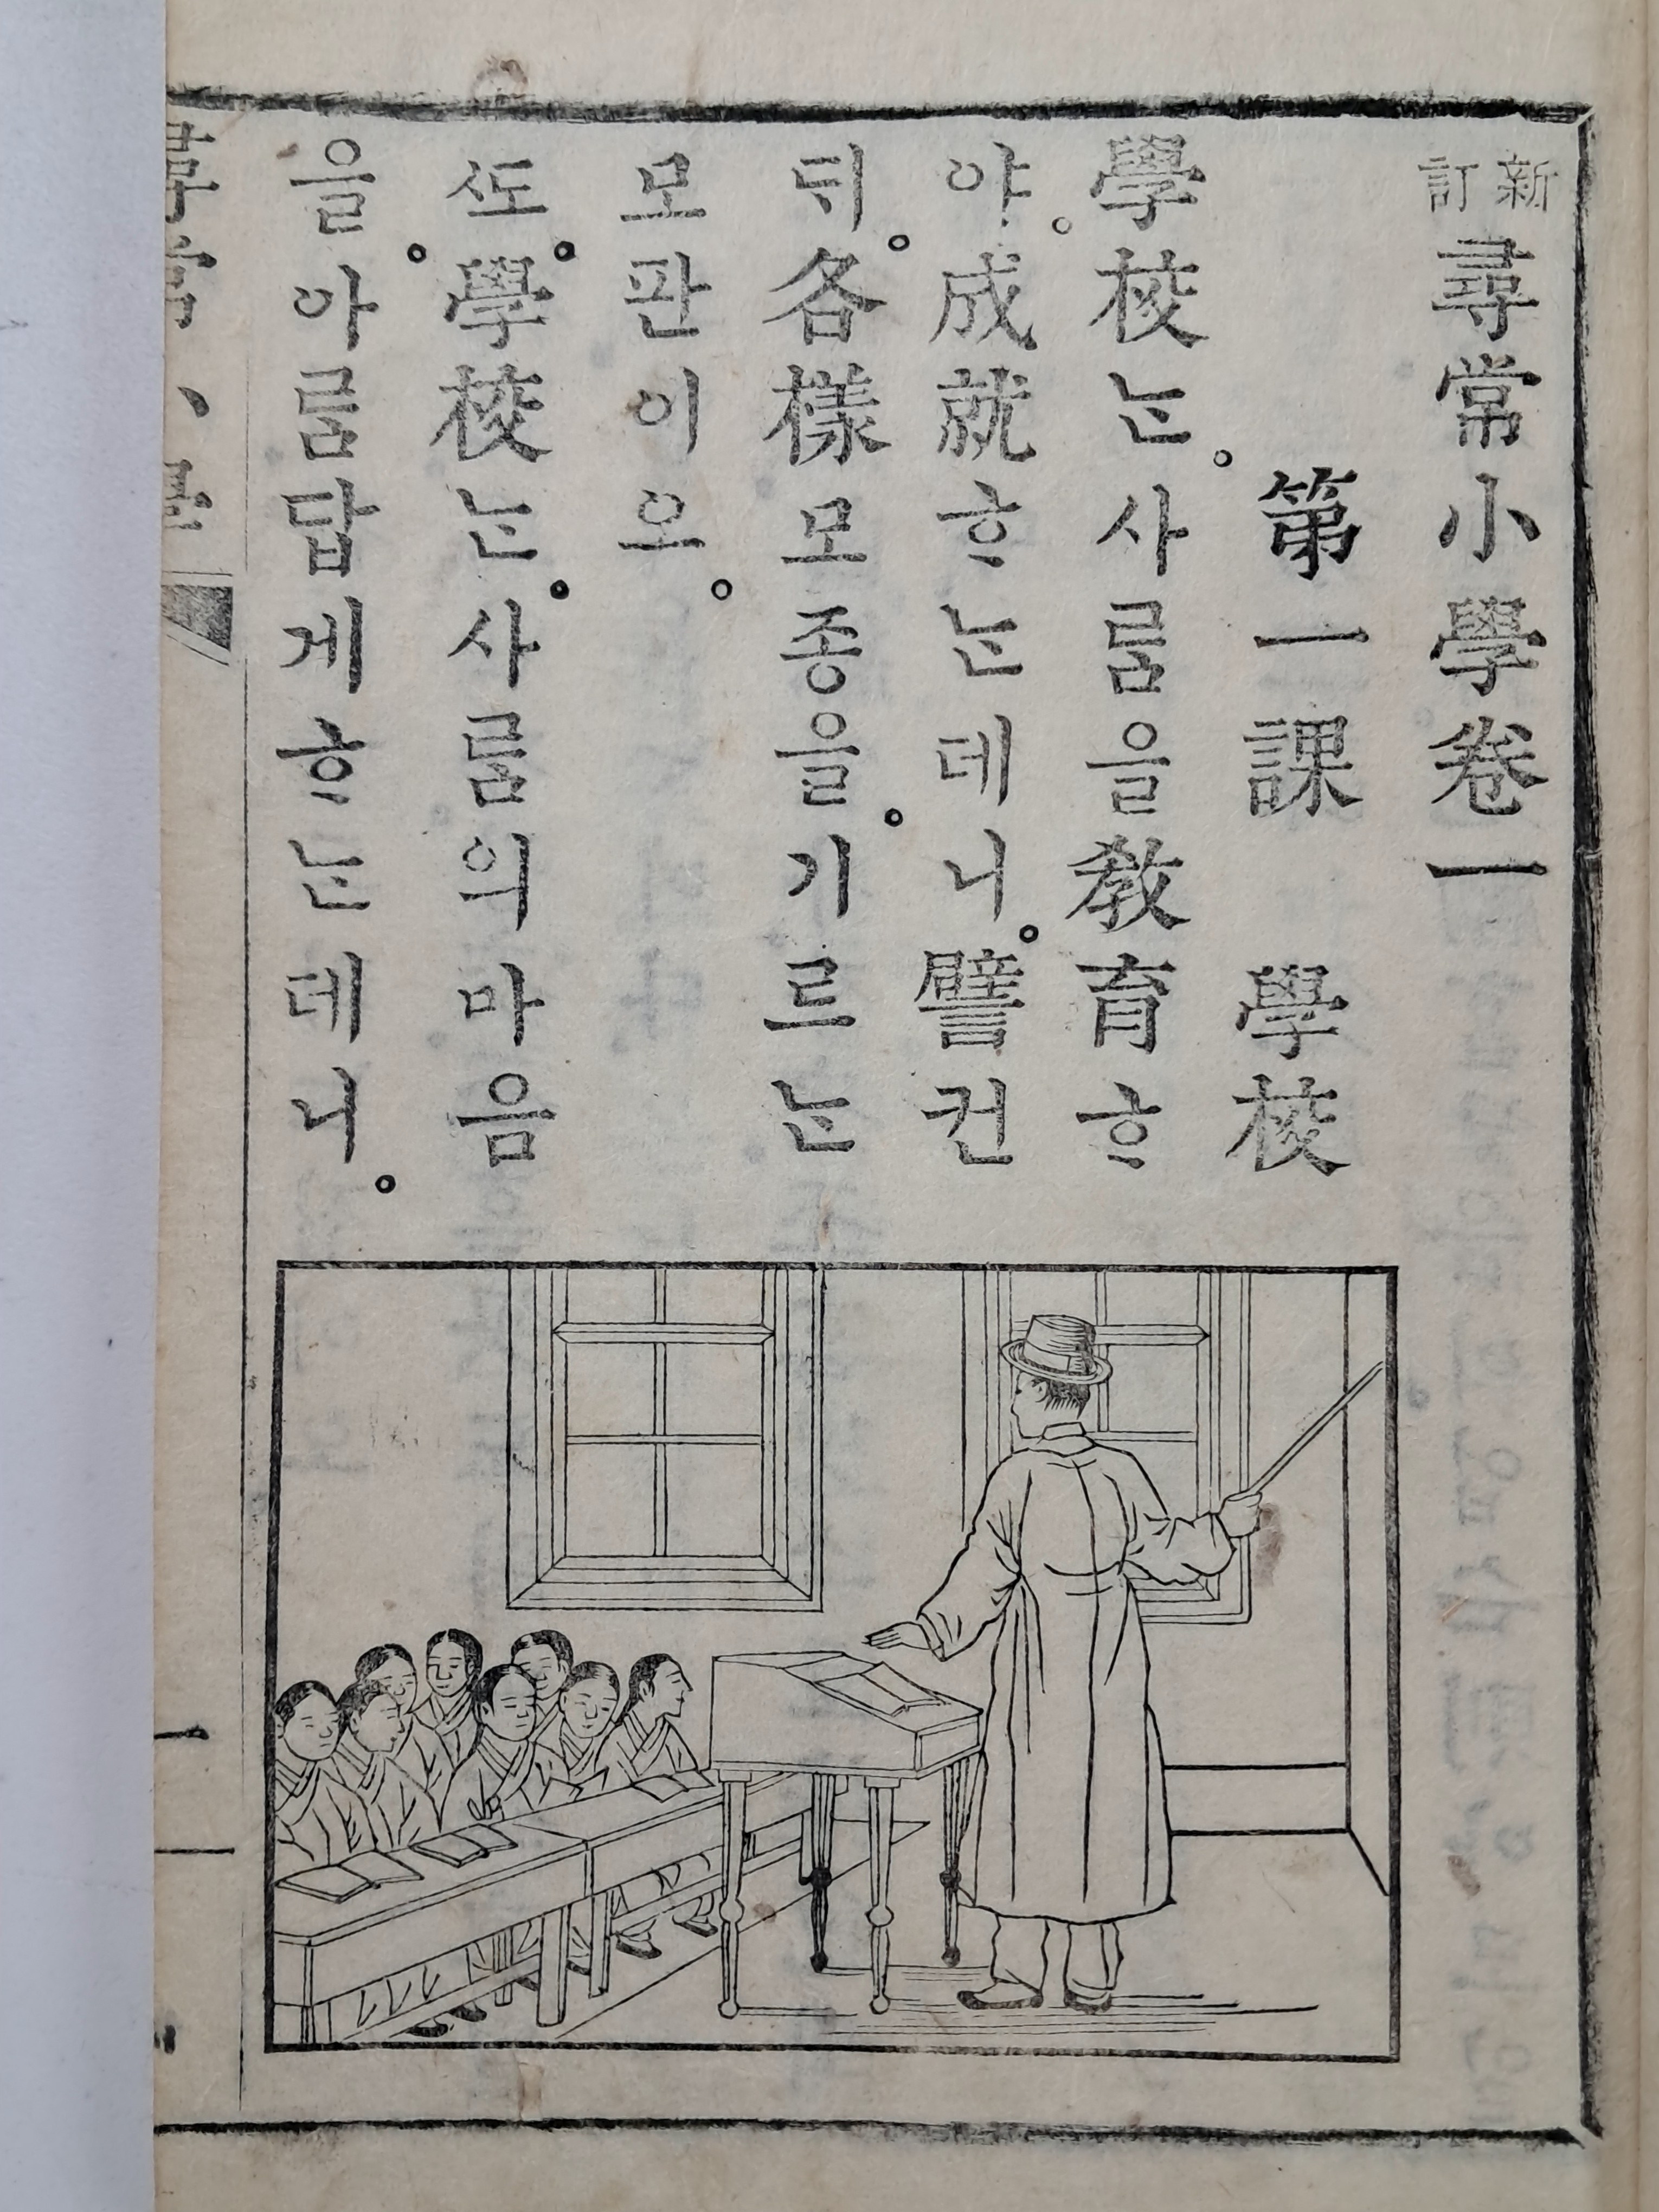 新訂尋常小學卷一
第一課 學校
學校ᄂᆞᆫ。사ᄅᆞᆷ을敎育ᄒᆞ
야。成就ᄒᆞᄂᆞᆫ데니。譬컨
ᄃᆡ。各樣모죵을。기르ᄂᆞᆫ
모판이오。
ᄯᅩ。學校ᄂᆞᆫ。사ᄅᆞᆷ의마음
을。아ᄅᆞᆷ답게ᄒᆞᄂᆞᆫ데니。